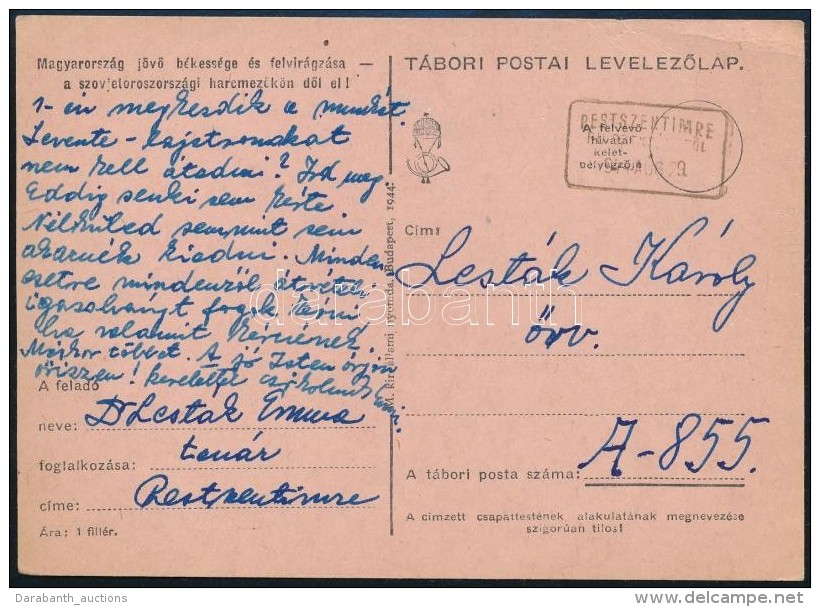 Magyarország jövő békessége és felvirágzása —
a szovjetoroszországi harcmezőkön dől el!
1-én megkezdik a munkát.
Levente-lajstromokat
nem kell átadni? Írd meg
Eddig senki sem kérte
Nélküled semmit sem
akarnék kiadni. Minden
esetre mindenről átvételi
igazolványt fogok
ha valamit kérnének.
Máskor többet. A jó Isten
őrizzen! szeretettel csókolunk
A feladó
neve: Dr Lesták Emma
tanár
foglalkozása:
címe: Pestszentimre
Ára: 1 fillér.
M. kir. állami nyomda, Budapest, 1944.
TÁBORI POSTAI LEVELEZŐLAP.
PESTSZENTIMRE
A felvevő
hivatal
kelet-
bélyegzője
AUG 29
Cím:
Lesták Károly
őrv.
A-855.
A tábori posta száma:
A címzett csapattestének, alakulatának megnevezése
szigorúan tilos!
darabanth
Darabanth_auctions
delcampe.net